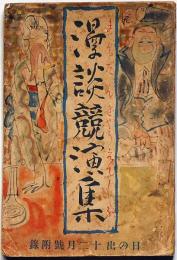 漫談競演集
日の出十二月號附録